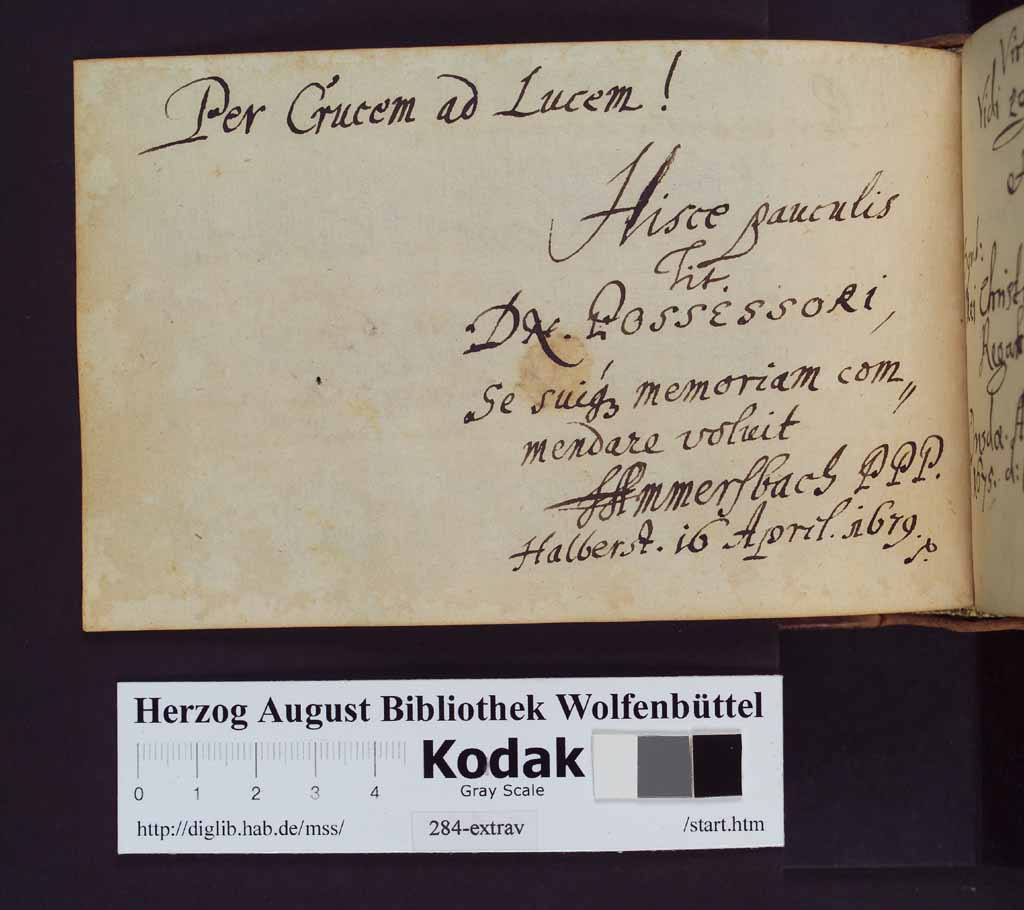 Per Crucem ad Lucem!
Hisce pauculis
Tit.
Dn. POSSESSORI,
Se suiq3 memoriam com„
mendare voluit
Immersbach PPP.
Halberst. 16 April. 1679.
Herzog August Bibliothek Wolfenbüttel
0 1 2 3 4
Kodak
Gray Scale
http://diglib.hab.de/mss/ 284-extrav /start.htm